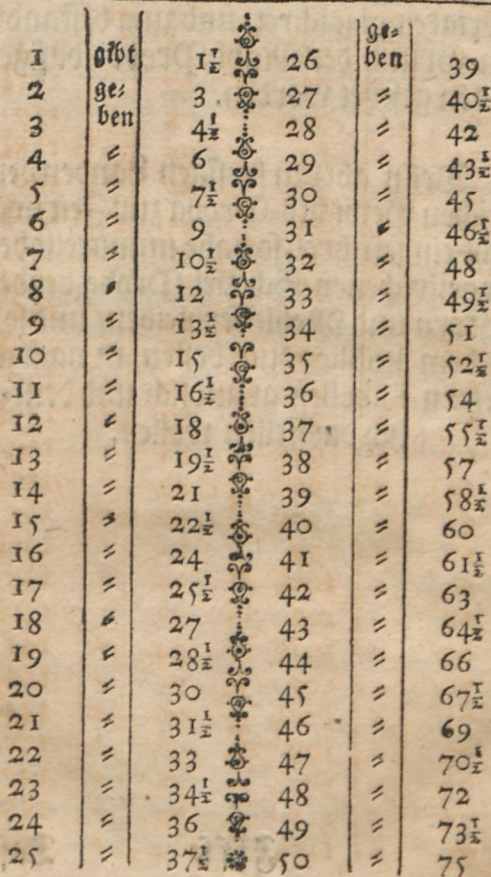 1 gibt 1½ 26 ge⸗ben 39
2 ge⸗ben 3 27 ⸗ 40½
3 4½ 28 ⸗ 42
4 ⸗ 6 29 ⸗ 43½
5 ⸗ 7½ 30 ⸗ 45
6 ⸗ 9 31 ⸗ 46½
7 ⸗ 10½ 32 ⸗ 48
8 ⸗ 12 33 ⸗ 49½
9 ⸗ 13½ 34 ⸗ 51
10 ⸗ 15 35 ⸗ 52½
11 ⸗ 16½ 36 ⸗ 54
12 ⸗ 18 37 ⸗ 55½
13 ⸗ 19½ 38 ⸗ 57
14 ⸗ 21 39 ⸗ 58½
15 ⸗ 22½ 40 ⸗ 60
16 ⸗ 24 41 ⸗ 61½
17 ⸗ 25½ 42 ⸗ 63
18 ⸗ 27 43 ⸗ 64½
19 ⸗ 28½ 44 ⸗ 66
20 ⸗ 30 45 ⸗ 67½
21 ⸗ 31½ 46 ⸗ 69
22 ⸗ 33 47 ⸗ 70½
23 ⸗ 34½ 48 ⸗ 72
24 ⸗ 36 49 ⸗ 73½
25 ⸗ 37½ 50 ⸗ 75